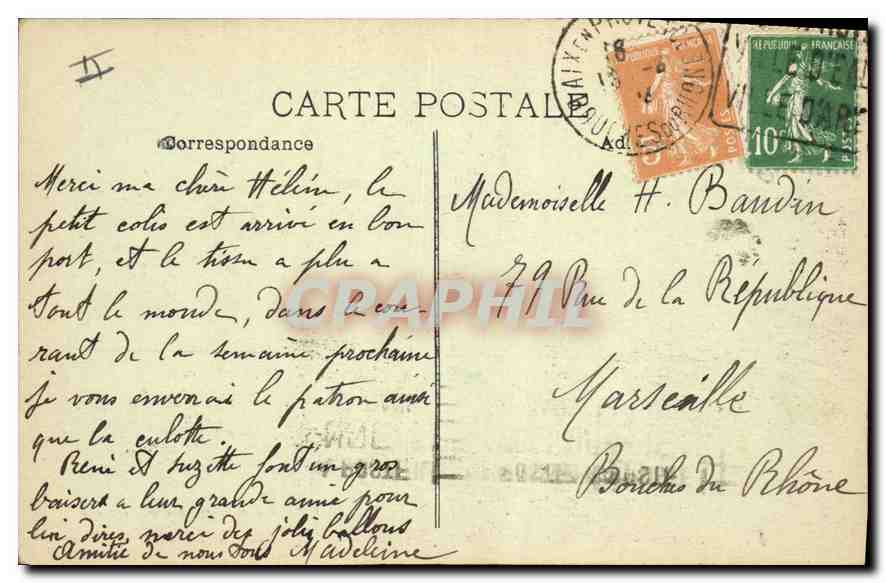 II
CARTE POSTALE
Correspondance
Ad
AIX EN PROVENCE
BOUCHES DU RHONE
18
RÉPUBLIQUE FRANÇAISE
POSTES
5
RÉPUBLIQUE FRANÇAISE
10
POSTES
VILLE D'EAU
VILLE D'ART
Merci ma chère Hélène, le
petit colis est arrivé en bon
port, et le tissu a plu a
tout le monde, dans le cou-
rant de la semaine prochaine
je vous enverrai le patron ainsi
que la culotte.
René et Suzette font un gros
baiser a leur grande amie pour
lui dire merci des jolis ballons
Amitié de nous tous Madeleine
Mademoiselle H. Baudin
79 Rue de la République
Marseille
Bouches du Rhône
CPAPHIL